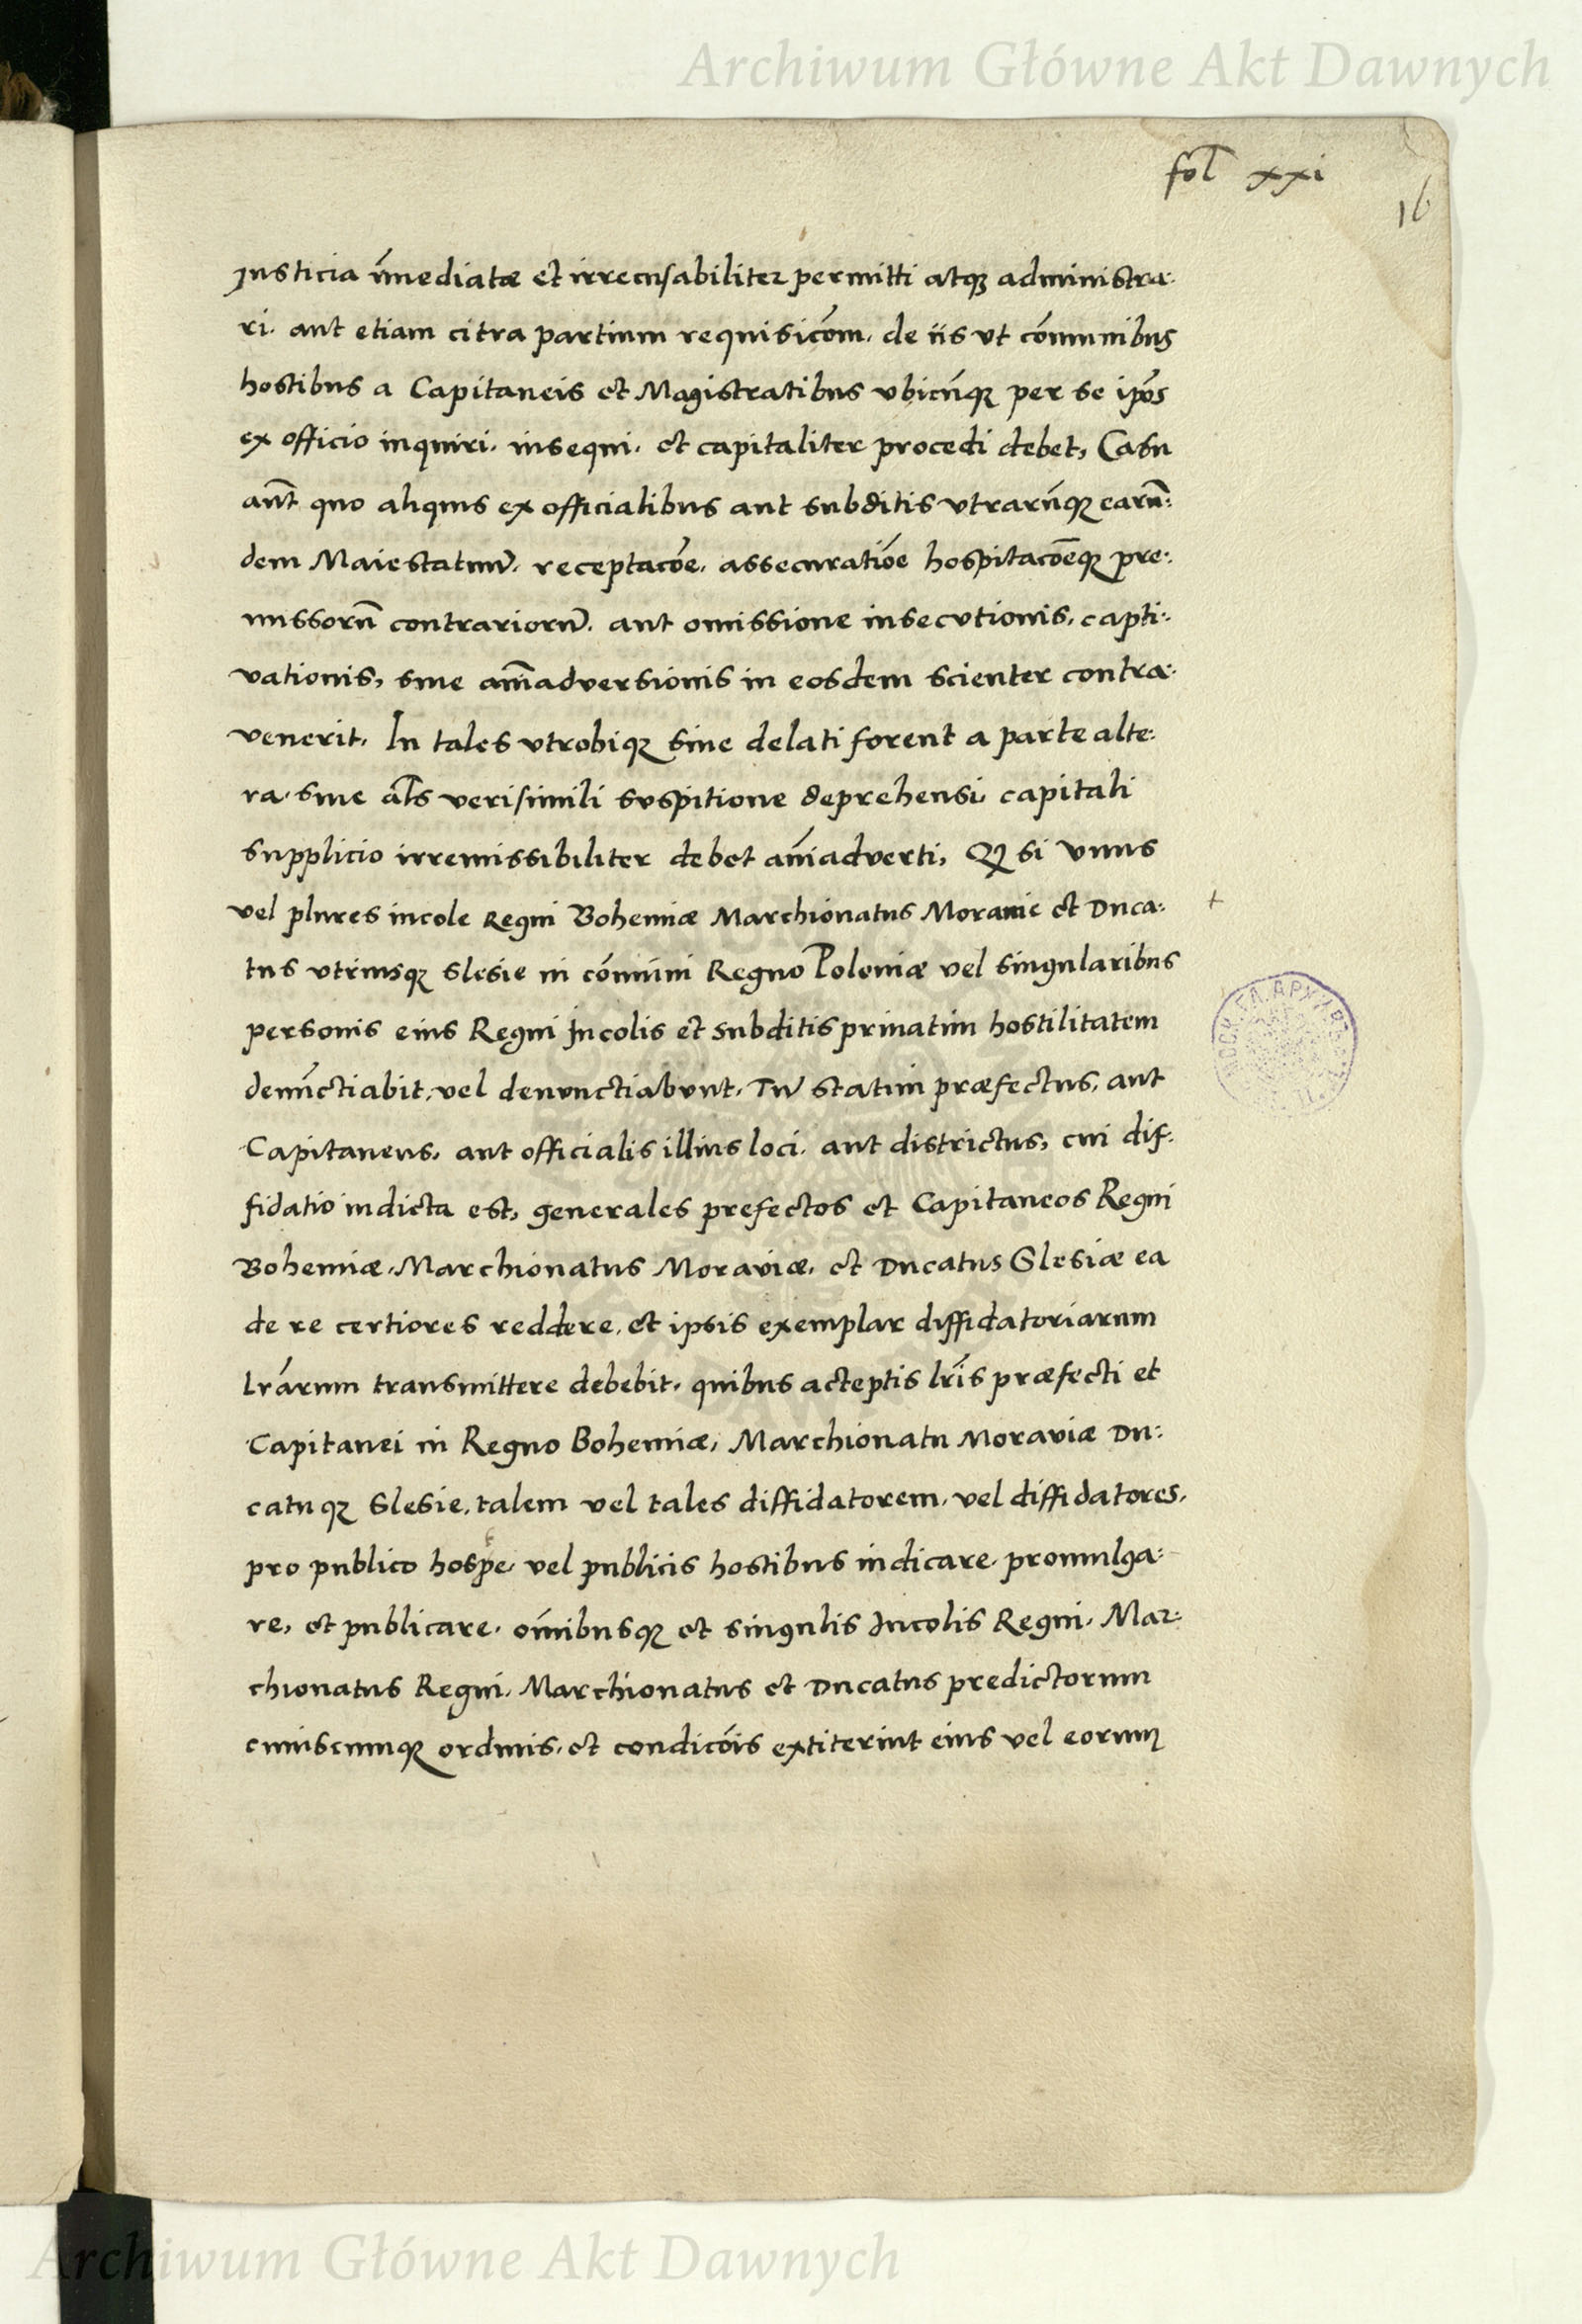 Archiwum Główne Akt Dawnych
fol xxi
16
Justicia im̃ediatæ et irrecusabiliter permitti atqꝫ administra:
ri. aut etiam citra partium requisicõm. de iis vt cõmunibus
hostibus a Capitaneis et Magistratibus vbicũqꝫ per se ip̃os
ex officio inquiri. insequi. et capitaliter procedi debet, Casu
aũt quo aliquis ex officialibus aut subditis vtrarũqꝫ earũ:
dem Maiestatum̃. receptacõe. assecuratiõe hospitacõeqꝫ pre:
missorũ contrariorũ. aut omissione insecvtionis. capti:
vationis, siue anĩadversionis in eosdem scienter contra:
venerit. In tales vtrobiqꝫ siue delati forent a parte alte:
ra. siue al̃s verisimili svspitione deprehensi capitali
supplicio irremissibiliter debet anĩadverti, Qꝫ si vnus
vel plures incole Regni Bohemiæ Marchionatus Morauie et Duca:
+
tus vtriusqꝫ Slesie in cõmuni Regno Poloniæ vel singularibus
personis eius Regni Incolis et subditis priuatim hostilitatem
denũctiabit. vel denvnctiabvnt. Tũ statim præfectus, aut
Capitaneus, aut officialis illius loci. aut districtus, cui dif:
fidatio indicta est, generales prefectos et Capitaneos Regni
Bohemiæ. Marchionatus Moraviæ. et Ducatus Slesiæ ea
de re certiores reddere. et ipsis exemplar diffidatoriarum
lr̃arum transmittere debebit. quibus acteptis lr̃is præfecti et
Capitanei in Regno Bohemiæ, Marchionatu Moraviæ Du:
catuqꝫ Slesie. talem vel tales diffidatorem. vel diffidatores.
pro publico hospe. vel publicis hostibus indicare. promulga:
re, et publicare. om̃ibusqꝫ et singulis Incolis Regni. Mar:
chionatus Regni. Marchionatus et Ducatus predictorum
cuiuscumqꝫ ordinis. et condicõis extiterint eius vel eorum
Archiwum Główne Akt Dawnych